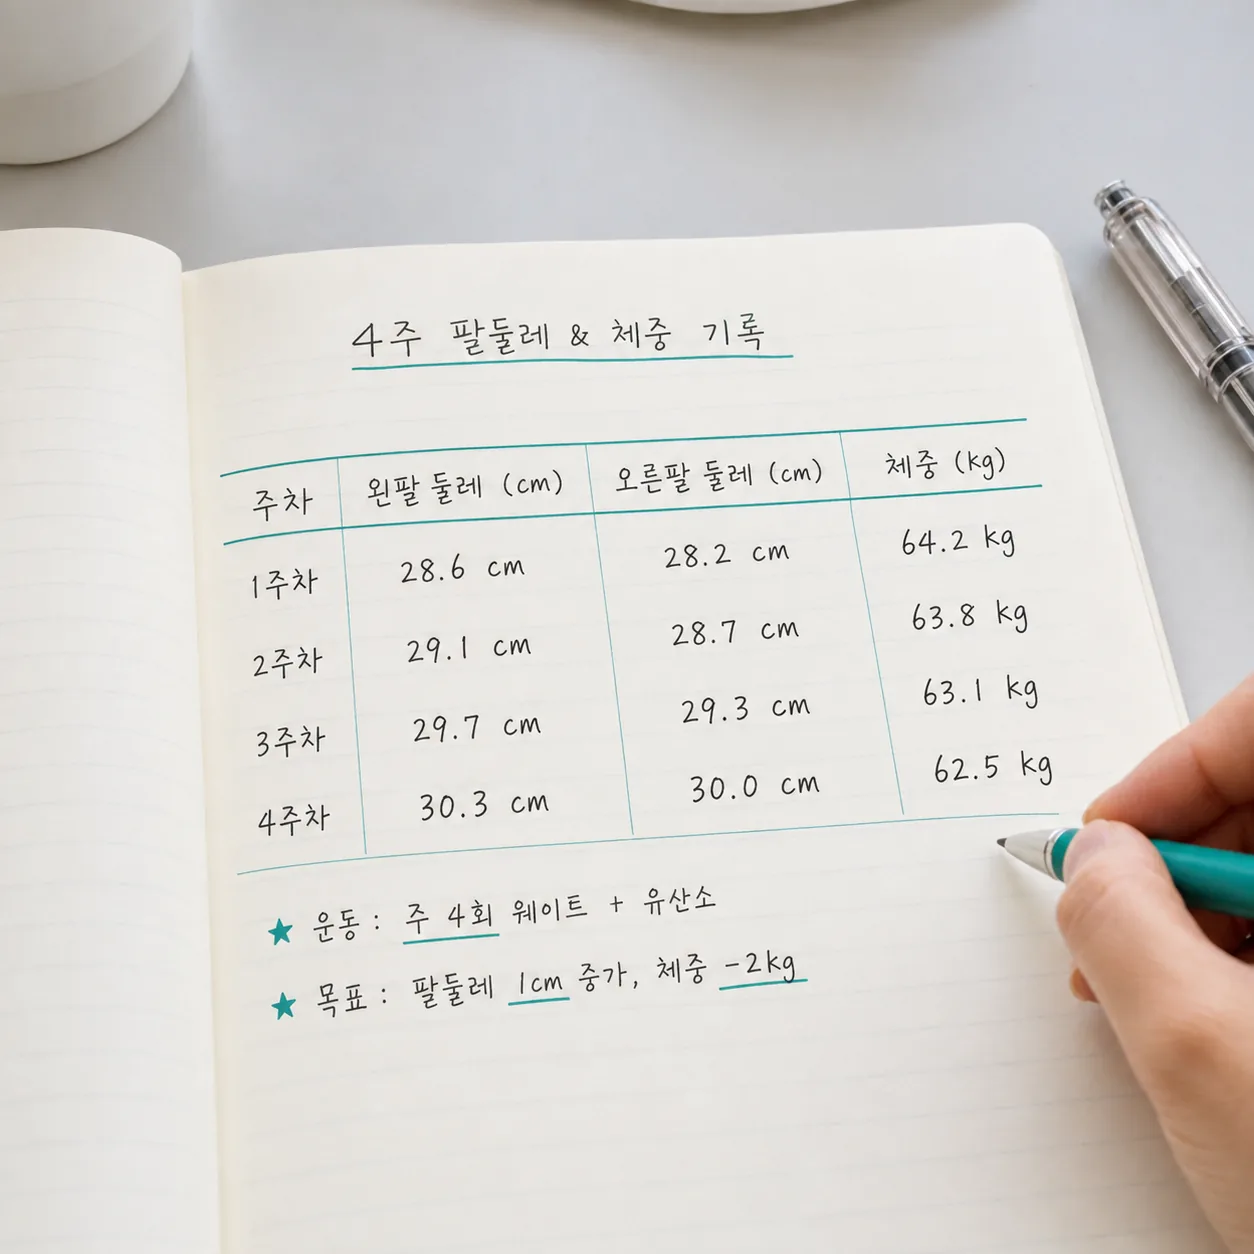 4주 팔둘레 & 체중 기록
주차 왼팔 둘레 (cm) 오른팔 둘레 (cm) 체중 (kg)
1주차 28.6 cm 28.2 cm 64.2 kg
2주차 29.1 cm 28.7 cm 63.8 kg
3주차 29.7 cm 29.3 cm 63.1 kg
4주차 30.3 cm 30.0 cm 62.5 kg
★ 운동 : 주 4회 웨이트 + 유산소
★ 목표 : 팔둘레 1cm 증가, 체중 -2kg